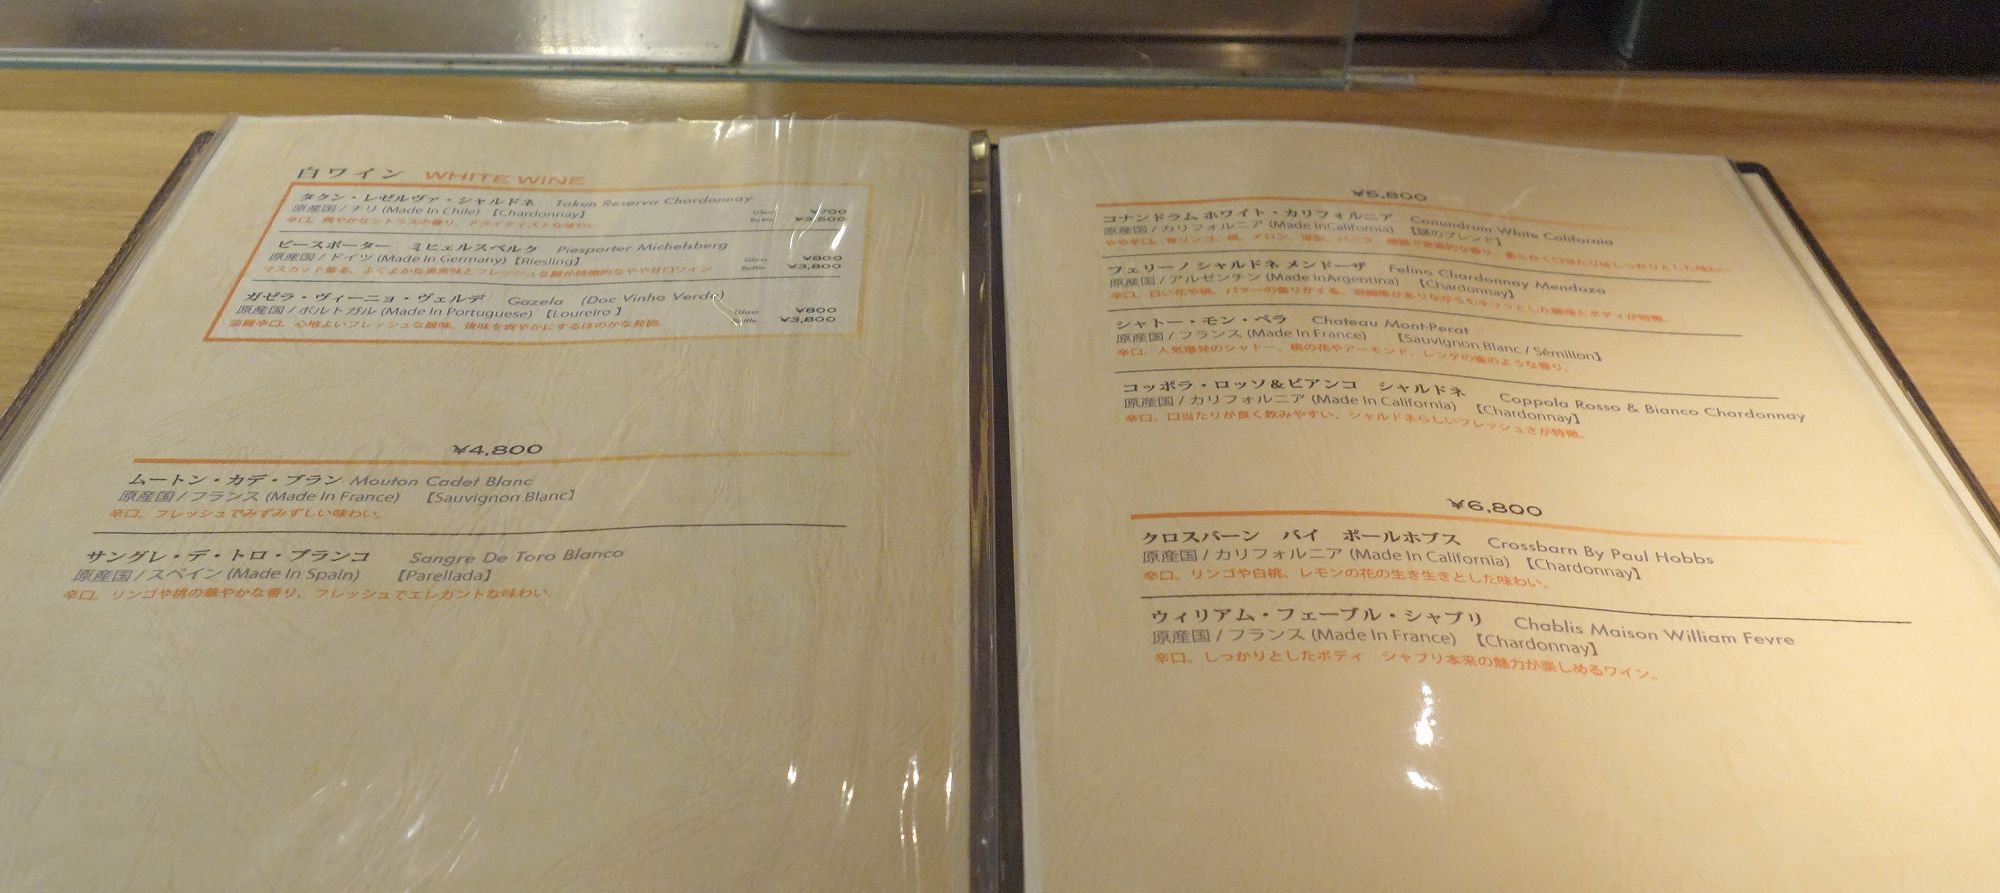 白ワイン WHITE WINE
タクン・レゼルヴァ・シャルドネ Takun Reserva Chardonnay
原産国 / チリ (Made In Chile) 【Chardonnay】 Glass ¥700
辛口。爽やかなシトラスの香り、ドライテイストな味わい。 Bottle ¥3,500
ピースポーター ミヒェルスベルク Piesporter Michelsberg
原産国 / ドイツ (Made In Germany) 【Riesling】 Glass ¥800
マスカット香る、ふくよかな果実味とフレッシュな酸が特徴的なやや甘口ワイン Bottle ¥3,800
ガゼラ・ヴィーニョ・ヴェルデ Gazela (Doc Vinho Verde)
原産国 / ポルトガル (Made In Portuguese) 【Loureiro】 Glass ¥800
淡麗辛口。心地よいフレッシュな酸味、後味を爽やかにするほのかな発砲。 Bottle ¥3,800
¥4,800
ムートン・カデ・ブラン Mouton Cadet Blanc
原産国 / フランス (Made In France) 【Sauvignon Blanc】
辛口。フレッシュでみずみずしい味わい。
サングレ・デ・トロ・ブランコ Sangre De Toro Blanco
原産国 / スペイン (Made In Spain) 【Parellada】
辛口。リンゴや桃の華やかな香り、フレッシュでエレガントな味わい。
¥5,800
コナンドラム ホワイト・カリフォルニア Conundrum White California
原産国 / カリフォルニア (Made InCalifornia) 【謎のブレンド】
やや辛口。青リンゴ、桃、メロン、洋梨、バニラ、
フェリーノ シャルドネ メンドーザ Felino Chardonnay Mendoza
原産国 / アルゼンチン (Made InArgentina) 【Chardonnay】
辛口。白い花や桃、バターの香りがする、凝縮感がありながらもキリッとした酸味とボディが特徴。
シャトー・モン・ペラ Chateau Mont-Perat
原産国 / フランス (Made In France) 【Sauvignon Blanc / Sémillon】
辛口。人気爆発のシャトー、桃の花やアーモンド、レンゲの蜜のような香り。
コッポラ・ロッソ&ビアンコ シャルドネ Coppola Rosso & Bianco Chardonnay
原産国 / カリフォルニア (Made In California) 【Chardonnay】
辛口。口当たりが良く飲みやすい、シャルドネらしいフレッシュさが特徴。
¥6,800
クロスバーン バイ ポールホブス Crossbarn By Paul Hobbs
原産国 / カリフォルニア (Made In California) 【Chardonnay】
辛口。リンゴや白桃、レモンの花の生き生きとした味わい。
ウィリアム・フェーブル・シャブリ Chablis Maison William Fevre
原産国 / フランス (Made In France) 【Chardonnay】
辛口。しっかりとしたボディ シャブリ本来の魅力が楽しめるワイン。